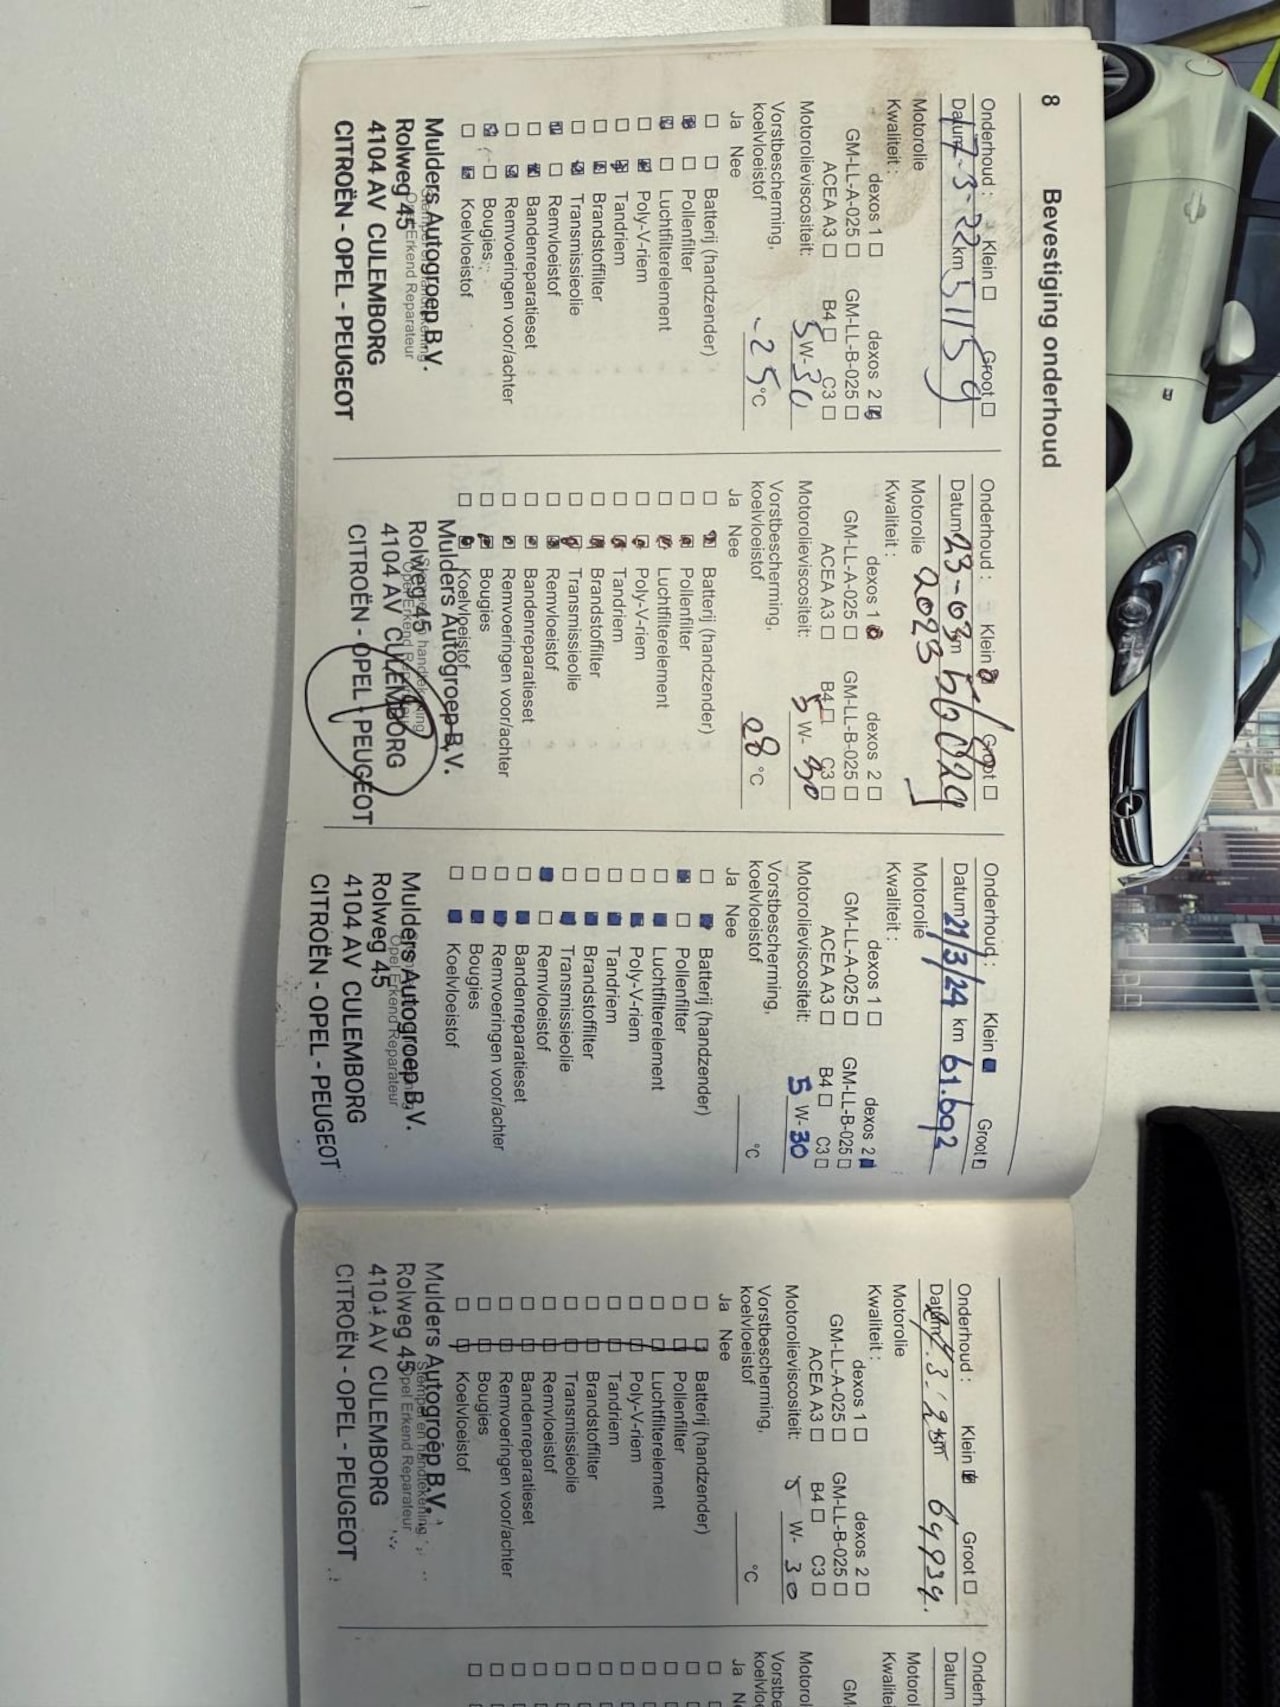 8
Bevestiging onderhoud
Onderhoud : Klein Groot
Datum 17-3-22 km 51159
Motorolie
Kwaliteit :
dexos 1 dexos 2
GM-LL-A-025 GM-LL-B-025
ACEA A3 B4 C3
Motorolieviscositeit: 5 W- 30
Vorstbescherming,
koelvloeistof -25 °C
Ja Nee
Batterij (handzender)
Pollenfilter
Luchtfilterelement
Poly-V-riem
Tandriem
Brandstoffilter
Transmissieolie
Remvloeistof
Bandenreparatieset
Remvoeringen voor/achter
Bougies
Koelvloeistof
Mulders Autogroep B.V.
Opel Erkend Reparateur
Rolweg 45
4104 AV CULEMBORG
CITROËN - OPEL - PEUGEOT
Onderhoud : Klein Groot
Datum 23-03 km
Motorolie 2023
Kwaliteit :
dexos 1 dexos 2
GM-LL-A-025 GM-LL-B-025
ACEA A3 B4 C3
Motorolieviscositeit: 5 W- 30
Vorstbescherming,
koelvloeistof 28 °C
Ja Nee
Batterij (handzender)
Pollenfilter
Luchtfilterelement
Poly-V-riem
Tandriem
Brandstoffilter
Transmissieolie
Remvloeistof
Bandenreparatieset
Remvoeringen voor/achter
Bougies
Koelvloeistof
Mulders Autogroep B.V.
Rolweg 45
4104 AV CULEMBORG
CITROËN - OPEL - PEUGEOT
Onderhoud : Klein Groot
Datum 21/3/24 km 61.692
Motorolie
Kwaliteit :
dexos 1 dexos 2
GM-LL-A-025 GM-LL-B-025
ACEA A3 B4 C3
Motorolieviscositeit: 5 W- 30
Vorstbescherming,
koelvloeistof °C
Ja Nee
Batterij (handzender)
Pollenfilter
Luchtfilterelement
Poly-V-riem
Tandriem
Brandstoffilter
Transmissieolie
Remvloeistof
Bandenreparatieset
Remvoeringen voor/achter
Bougies
Koelvloeistof
Mulders Autogroep B.V.
Opel Erkend Reparateur
Rolweg 45
4104 AV CULEMBORG
CITROËN - OPEL - PEUGEOT
Onderhoud : Klein Groot
Datum km 64934.
Motorolie
Kwaliteit :
dexos 1 dexos 2
GM-LL-A-025 GM-LL-B-025
ACEA A3 B4 C3
Motorolieviscositeit: 5 W- 30
Vorstbescherming,
koelvloeistof °C
Ja Nee
Batterij (handzender)
Pollenfilter
Luchtfilterelement
Poly-V-riem
Tandriem
Brandstoffilter
Transmissieolie
Remvloeistof
Bandenreparatieset
Remvoeringen voor/achter
Bougies
Koelvloeistof
Mulders Autogroep B.V.
Stempel en handtekening
Opel Erkend Reparateur
Rolweg 45
4104 AV CULEMBORG
CITROËN - OPEL - PEUGEOT
Onderh
Datum
Motorol
Kwaliteit
GM
Motorol
Vorstbe
koelvlo
Ja